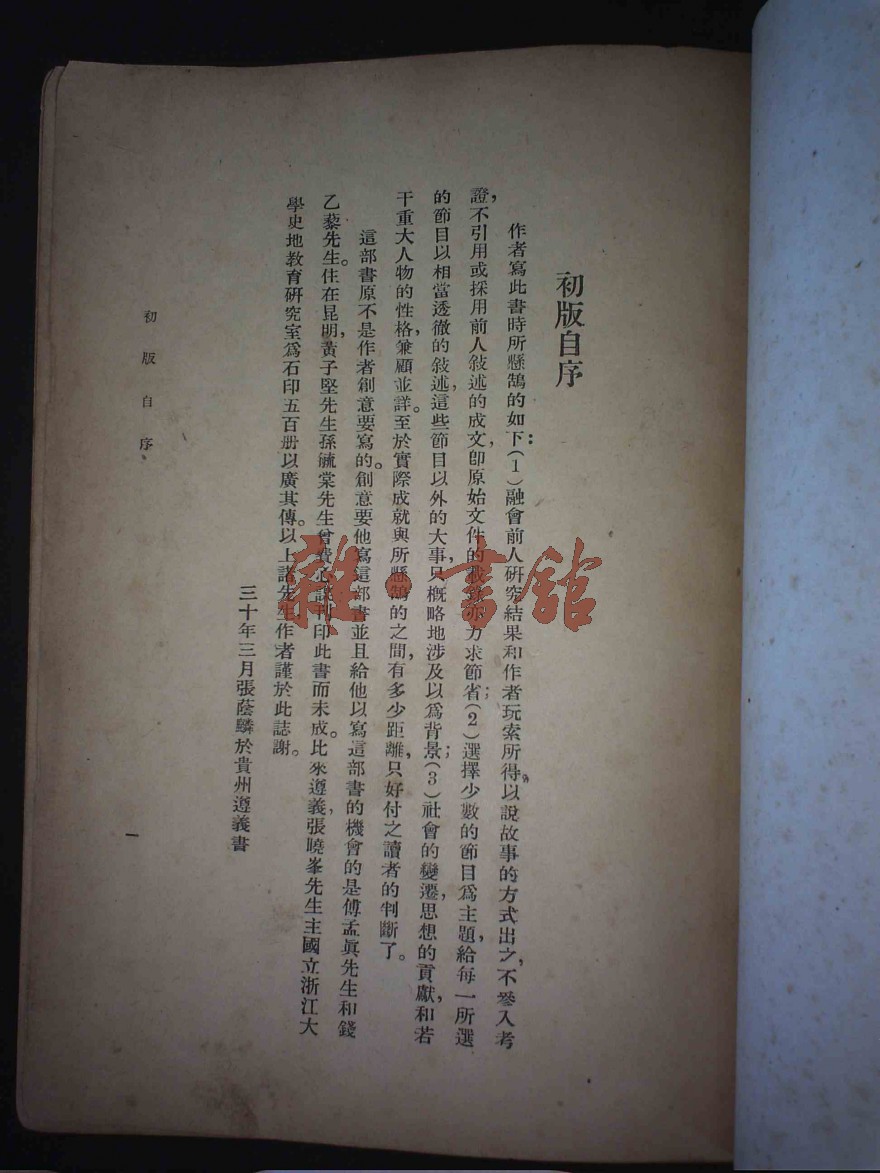 初版自序
作者寫此書時所懸鵠的如下：（1）融會前人研究結果和作者玩索所得，以說故事的方式出之，不參入考
證，不引用或採用前人敍述的成文，卽原始文件的載錄亦力求節省；（2）選擇少數的節目爲主題，給每一所選
的節目以相當透徹的敍述，這些節目以外的大事，只概略地涉及以爲背景；（3）社會的變遷，思想的貢獻，和若
干重大人物的性格，兼顧並詳。至於實際成就與所懸鵠的之間，有多少距離，只好付之讀者的判斷了。
這部書原不是作者創意要寫的。創意要他寫這部書並且給他以寫這部書的機會的是傅孟眞先生和錢
乙藜先生。住在昆明，黃子堅先生孫毓棠先生曾費心謀刊印此書而未成。比來遵義，張曉峯先生主國立浙江大
學史地敎育硏究室爲石印五百册以廣其傳。以上諸先生作者謹於此誌謝。
三十年三月張蔭麟於貴州遵義書
初版自序
一
雜·書舘